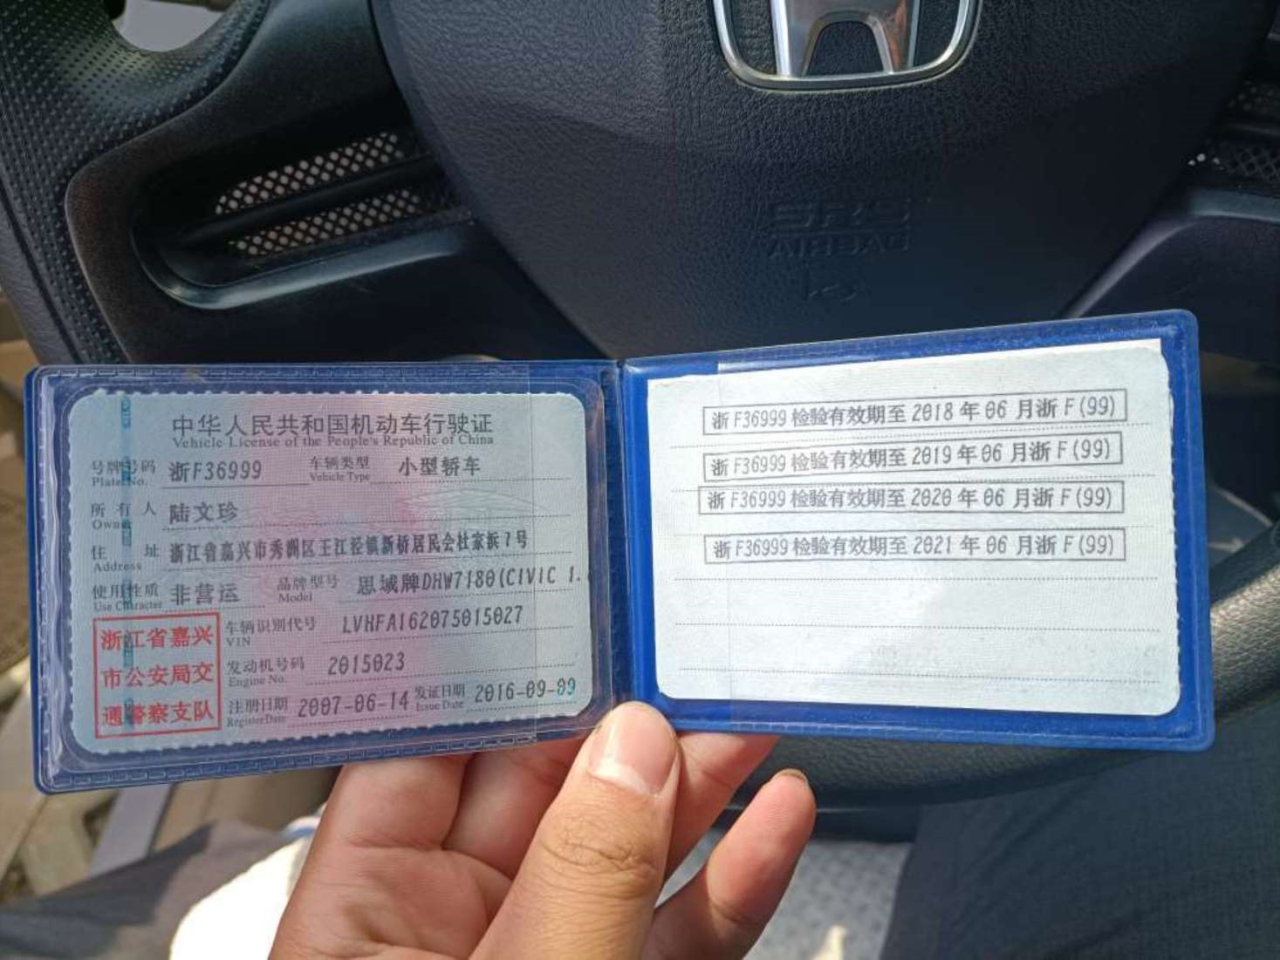 SRS
AIRBAG
中华人民共和国机动车行驶证
Vehicle License of the People's Republic of China
号牌号码 浙F36999 车辆类型 小型轿车
Plate No. Vehicle Type
所有人 陆文珍
Owner
住址 浙江省嘉兴市秀洲区王江泾镇新桥居民会杜家浜7号
Address
使用性质 非营运 品牌型号 思域牌DHW7180(CIVIC 1.
Use Character Model
浙江省嘉兴
市公安局交
通警察支队
车辆识别代号 LVHFA162075015027
VIN
发动机号码 2015023
Engine No.
注册日期 2007-06-14 发证日期 2016-09-09
Register Date Issue Date
浙F36999检验有效期至2018年06月浙F(99)
浙F36999检验有效期至2019年06月浙F(99)
浙F36999检验有效期至2020年06月浙F(99)
浙F36999检验有效期至2021年06月浙F(99)